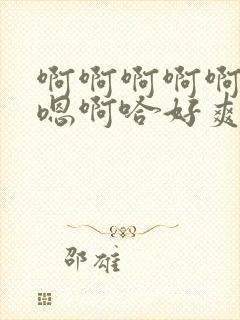 啊啊啊啊啊
嗯啊哈好爽
邵雄